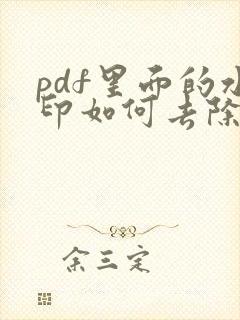 pdf里面的水
印如何去除
余三定